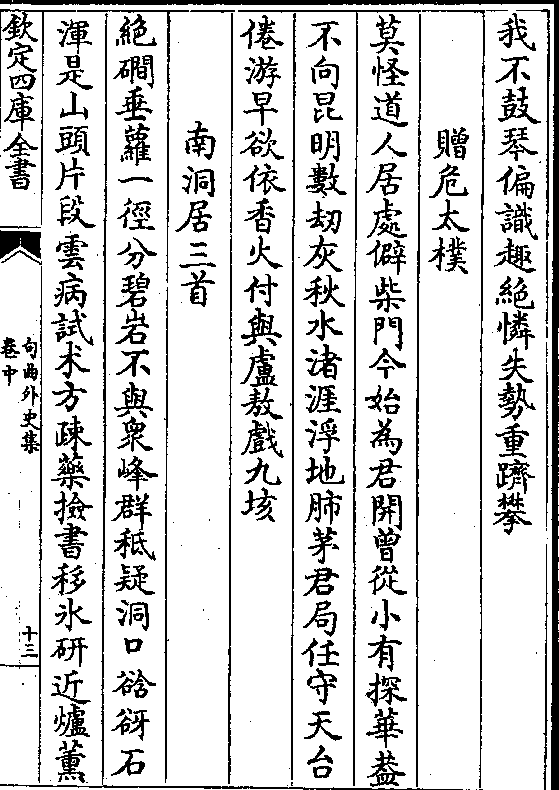 我不鼓琴偏識趣絶憐失勢重躋攀
贈危太樸
莫怪道人居處僻柴門今始為君開曾從小有探華葢
不向昆明數刼灰秋水渚涯浮地肺茅君局任守天台
倦游早欲依香火付與盧敖戲九垓
南洞居三首
絶磵垂蘿一徑分碧岩不與衆峰群秪疑洞口谽谺石
渾是山頭片段雲病試术方疎藥撿書移氷硏近爐薫
欽定四庫全書
句曲外史集
卷中
十三